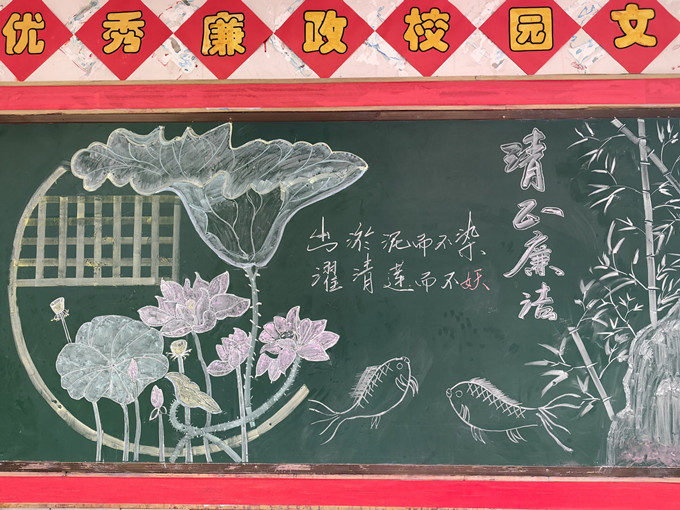 优秀廉政校园文
出淤泥而不染
濯清莲而不妖
清正廉洁